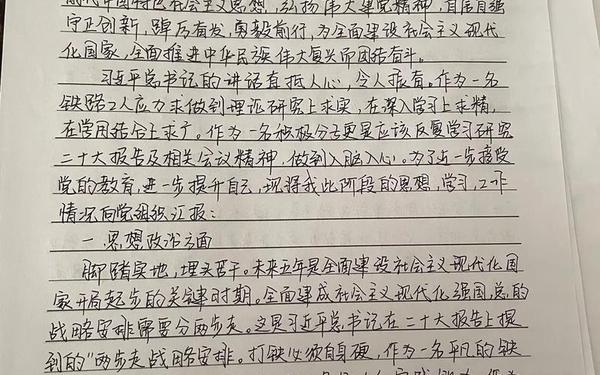 时代中国特色社会主义思想，弘扬伟大建党精神，自信自强
守正创新，踔厉奋发，勇毅前行，为全面建设社会主义现代
化国家，全面推进中华民族伟大复兴而团结奋斗。
习近平总书记的讲话直抵人心，令人振奋。作为一名
铁路工人应力求做到理论研究上求实，在深入学习上求精，
在学用结合上求广。作为一名积极分子更是应该反复学习研究
二十大报告及相关会议精神，做到入脑入心。为了进一步接受
党的教育，进一步提升自己，现将我此阶段的思想，学习，工作
情况向党组织汇报：
一.思想政治方面
脚踏实地，埋头苦干。未来五年是全面建设社会主义现代化国
家开局起步的关键时期。全面建成社会主义现代化强国，总的
战略安排需要分两步走。这是习近平总书记在二十大报告上提
到的“两步走战略安排。打铁必须自身硬，作为一名平凡的铁